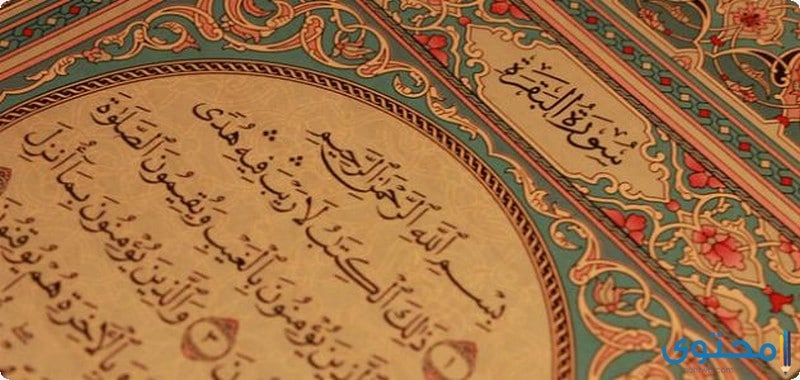 سُورَةُ الْبَقَرَةِ
بِسْمِ اللَّهِ الرَّحْمَٰنِ الرَّحِيمِ
١ ذَٰلِكَ الْكِتَٰبُ لَا رَيْبَ فِيهِ هُدًى
الَّذِينَ يُؤْمِنُونَ بِالْغَيْبِ وَيُقِيمُونَ الصَّلَوٰةَ
٣ وَالَّذِينَ يُؤْمِنُونَ بِمَا أُنزِلَ
بِالْآخِرَةِ هُمْ يُوقِنُونَ
محتوى